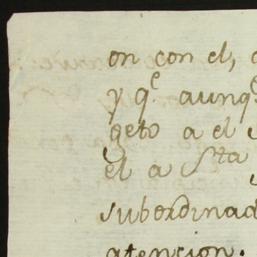 on con el,
y qᵉ aunq
geto a el
el a Sta
subordinad
atencion.